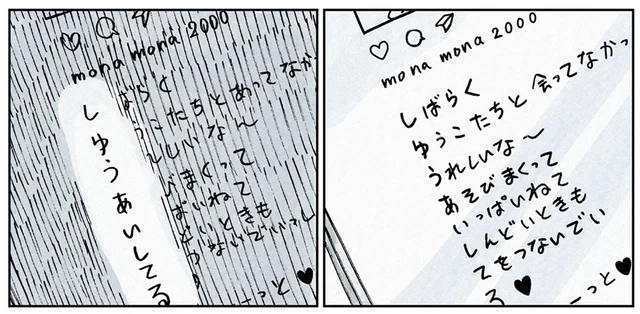 mona mona 2000
しゆうあいしてる
ばらく
うこたちとあってなか
しいな〜
びまくって
ぱいねて
どいときも
つないでいっし
ーっと♥
mona mona 2000
しばらく
ゆうこたちと 会ってなかっ
うれしいな〜
あそびまくって
いっぱいねて
しんどいときも
てをつないでい
る ♥
ーっと♥